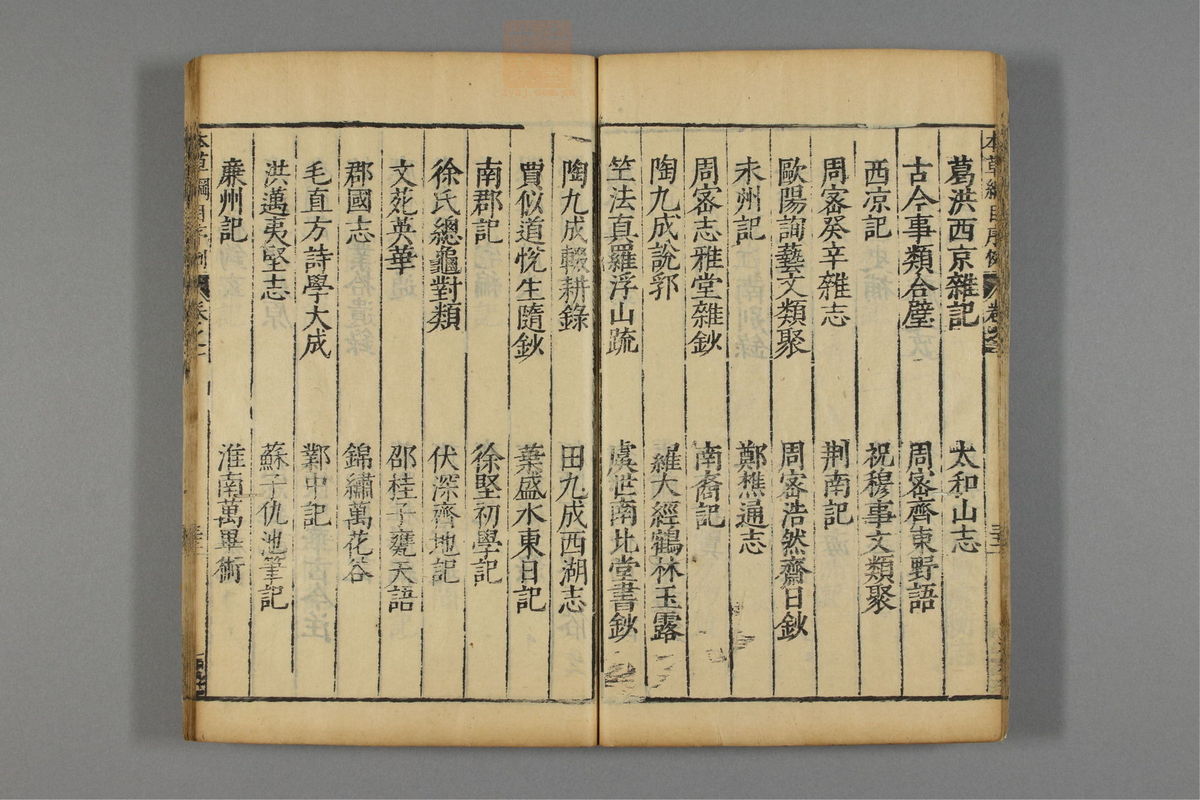 葛洪西京雜記　太和山志
古今事類合璧　周密齊東野語
西凉記　祝穆事文類聚
周密癸辛雜志　荆南記
歐陽詢藝文類聚　周密浩然齋日鈔
永州記　鄭樵通志
周密志雅堂雜鈔　南裔記
陶九成說郛　羅大經鶴林玉露
竺法真羅浮山疏　虞世南北堂書鈔
陶九成輟耕錄　田九成西湖志
賈似道悅生隨鈔　葉盛水東日記
南郡記　徐堅初學記
徐氏總龜對類　伏深齊地記
文苑英華　邵桂子甕天語
郡國志　錦繡萬花谷
毛直方詩學大成　鄴中記
洪邁夷堅志　蘇子仇池筆記
廉州記　淮南萬畢術
本草綱目序例